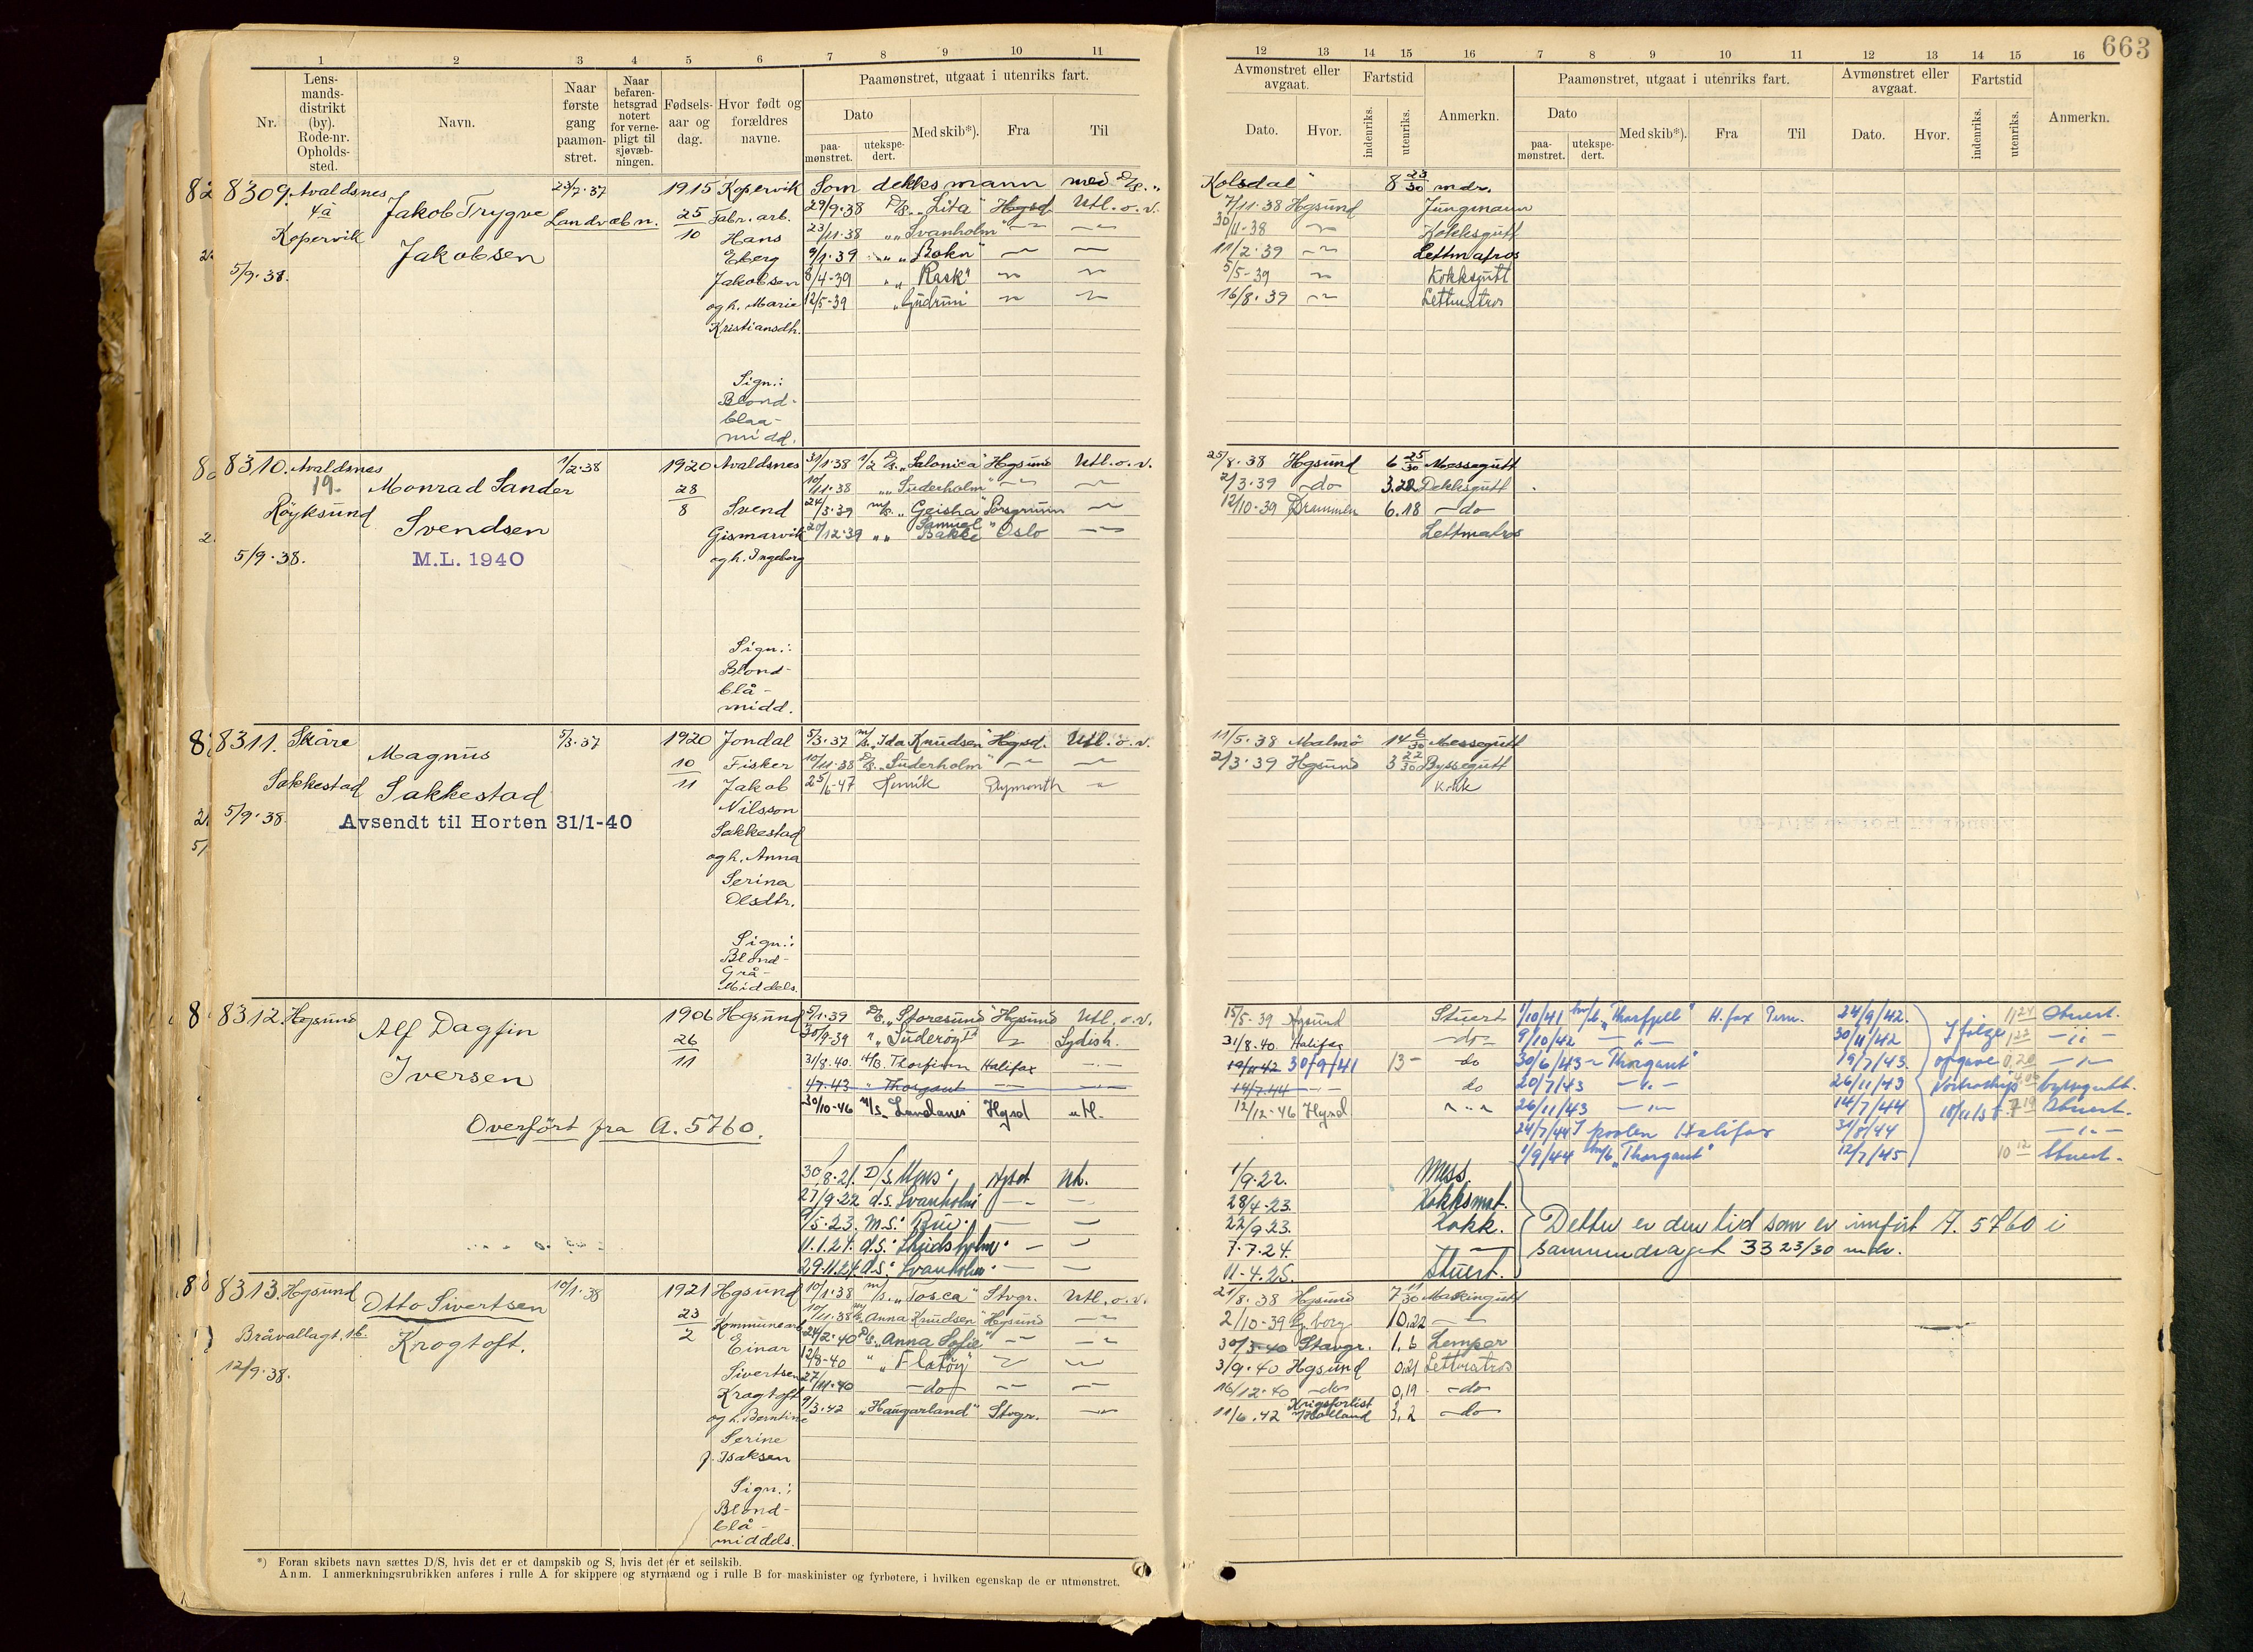 663
1 2 3 4 5 6 7 8 9 10 11
Nr.
Lens-
mands-
distrikt
(by).
Rode-nr.
Opholds-
sted.
Navn.
Naar
første
gang
paamøn-
stret.
Naar
befaren-
hetsgrad
notert
for verne-
pligt til
sjøvæb-
ningen.
Fødsels-
aar og
dag.
Hvor født og
forældres
navne.
Paamønstret, utgaat i utenriks fart.
Dato
paa-
mønstret.
utekspe-
dert.
Med skib*).
Fra
Til
12 13 14 15 16 7 8 9 10 11 12 13 14 15 16
Avmønstret eller
avgaat.
Dato.
Hvor.
Fartstid
indenriks.
utenriks.
Anmerkn.
Paamønstret, utgaat i utenriks fart.
Dato
paa-
mønstret.
utekspe-
dert.
Med skib*).
Fra
Til
Avmønstret eller
avgaat.
Dato.
Hvor.
Fartstid
indenriks.
utenriks.
Anmerkn.
8309. Avaldsnes
4a
Kopervik
5/9.38.
Jakob Trygve
Jakobsen
23/7.37
Landvæbn.
1915
25
10
Kopervik
Fabr. arb.
Hans
Eberg
Jakobsen
og h. Marie
Kristiansdh.
Sign.:
Blond-
blaa-
midd.
Som dekksmann med D/s. „Kolsdal" 8 23/30 mdr.
29/9.38 D/s. „Lita" Hgsd Utl. o. v. 7/11.38 Hgsund Jungmann
23/11.38 „ „Svanholm" 30/11-38 Kokksgutt
9/1.39 „ „Bokn" 11/2.39 Lettmatros
8/4-39 „ Rask" 5/5-39 Kokksgutt
12/5-39 „Gudrun" 16/8.39 Lettmatros
8310. Avaldsnes
19.
Røyksund
5/9.38.
Monrad Sander
Svendsen
M.L. 1940
1/2.38
1920
28
8
Avaldsnes
Svend
Gismarvik
og h. Ingeborg
Sign.:
Blond-
blå-
midd.
31/1.38 1/2 D/s. „Salonica" Hgsund Utl. o. v. 25/8.38 Hgsund 6 25/30 Messegutt
10/11.38 „ „Suderholm" 2/3.39 do 3.22 Dekksgutt
24/3.39 m/s. „Geisha" Porsgrunn 12/10.39 Drammen 6.18 do
20/12.39 „ „ Samuel Bakke" Oslo Lettmatros
8311. Skåre
Sakkestad
5/9.38.
Magnus
Sakkestad
Avsendt til Horten 31/1-40
5/3.37
1920
10
11
Jondal
Fisker
Jakob
Nilsson
Sakkestad
og h. Anna
Serina
Olsdtr.
Sign.:
Blond-
Grå-
Middels.
5/3.37 m/s. „Ida Knudsen" Hgsd. Utl. o. v. 11/5.38 Malmø 14 6/30 Messegutt
10/11.38 D/s. „Suderholm" 2/3.39 Hgsund 3 22/30 Byssegutt
25/6-47 Henrik Plymouth Kokk
8312. Hgsund
Alf Dagfin
Iversen
Overført fra A. 5760.
1906
26
11
Hgsund
5/1.39 D/s. „Storesund" Hgsund Utl. o. v. 15/5-39 Hgsund Stuert
30/9-39 „Suderøy I" Sydish. 31/8.40. Halifax do
31/8.40. Thorfinn Halifax 19/11 42 30/9/41 13- do
4/7.43 „ Thorgaut 14/7.44 do
30/10-46 m/s. Landanes Hgsd utl. 12/12-46 Hgsd
1/10/41 „Thorfjell" H.fax 24/9/42. 11 24 Stuert.
9/10/42 30/11/42 1 22
30/6/43 Thorgaut" 19/7/43. 0,20
20/7/43 26/11/43 byssegutt.
26/11/43 14/7/44 7 19 Stuert.
24/7/44 I poolen Halifax 31/8/44
1/9/44 „Thorgaut" 12/7/45 10 12 Stuert.
I følge
opgave
30/8.21. D/S. Mons. Hgsd Utl. 1/9.22. Mess.
27/9-22 d.s. Svanholm 28/4-23. Kokksmat.
9/5.23. m.s. 22/9.23. Kokk.
11.1.24. d.s. Skudsholm. 7.7.24.
29.11.24. d.s. Svanholm. 11-4.25. Stuert.
Dette er den tid som er innført A. 5760 i
sammendraget 33 23/30 mdr.
8313. Hgsund
Bråvallagt. 16.
12/9.38.
Otto Sivertsen
Krogtoft.
10/1.38
1921
23
2
Hgsund
Kommunearb.
Einar
Sivertsen
Krogtoft
og h. Berntine
Serine
f. Isaksen
Sign.:
Blond-
blå-
middels.
10/1.38 m/s. „Tosca" Stvgr. Utl. o. v. 21/8.38 Hgsund 7 11/30 Maskingutt
10/11.38 m/s. Anna Knudsen" Hgsund 2/10-39 G.borg 10,22
24/2-40 D/s. „Anna Sofie" 30/3-40 Stavgr. 1.6 Lemper
12/8-40 „Flatøy" 3/9.40 Hgsund 0,21 Lettmatros
27/11.40 do 16/12.40 do 0,19 do
9/3.42 „Haugarland" Stvgr. 11/6.42 Krigsforlist v/Holland 3,2 do
*) Foran skibets navn sættes D/S, hvis det er et dampskib og S, hvis det er et seilskib.
Anm. I anmerkningsrubrikken anføres i rulle A for skippere og styrmænd og i rulle B for maskinister og fyrbøtere, i hvilken egenskap de er utmønstret.